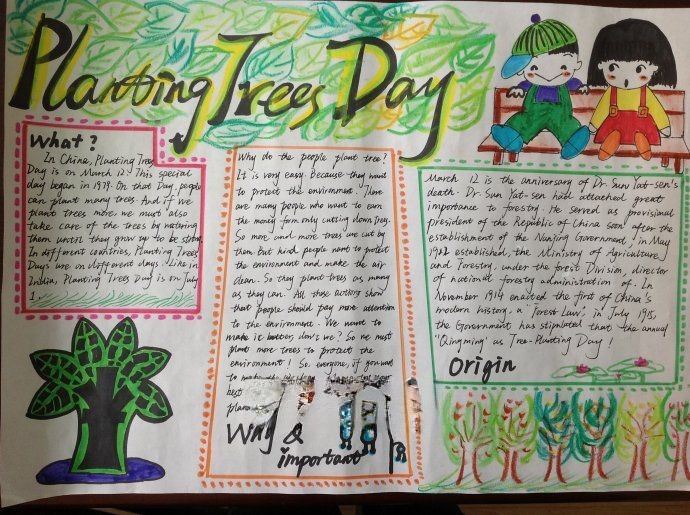 Planting Trees Day
What?
In China, Planting Trees
Day is on March 12. This special
day began in 1979. On that Day, people
can plant many trees. And if we
plant trees more, we must also
take care of the trees by watering
them until they grow up to be strong.
In different countries, Planting Trees
Days are on different days. Like in
India, Planting Trees Day is on July
1.
Why do the people plant tree?
It is very easy because they want
to protect the environment. There
are many people who want to earn
the money form only cutting down trees.
So more and more trees are cut by
them. But kind people want to protect
the environment and make the air
clean. So they plant trees as many
as they can. All these actions show
that people should pay more attention
to the environment. We want to
make it better, don's we? So we must
plant more trees to protect the
environment! So everyone, if you want
to
best
plan
Why &
important
March 12 is the anniversary of Dr. Sun Yat-sen's
death. Dr. Sun Yat-sen had attached great
importance to forestry. He served as provisional
president of the Republic of China soon after the
establishment of the Nanjing Government, in May
1912 established, the Ministry of Agriculture
and Forestry, under the forest Division, director
of national forestry administration of. In
November 1914 enacted the first of China's
modern history, a "Forest Law", in July 1915,
the Government has stipulated that the annual
"Qingming" as Tree-Planting Day!
Origin